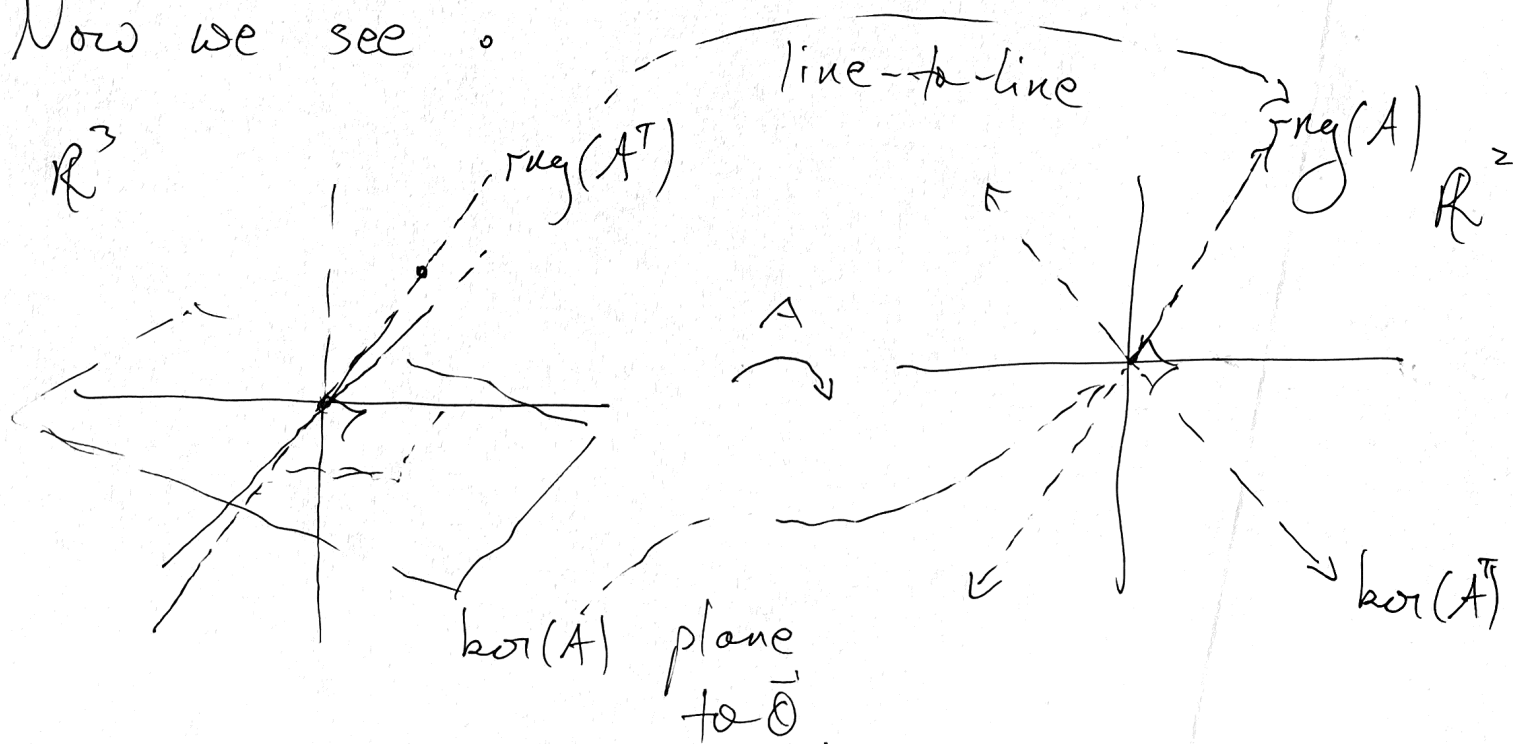 Now we see :
line-to-line
ℝ³
rng(Aᵀ)
rng(A)
ℝ²
A
ker(A) plane
to 0⃗
ker(Aᵀ)